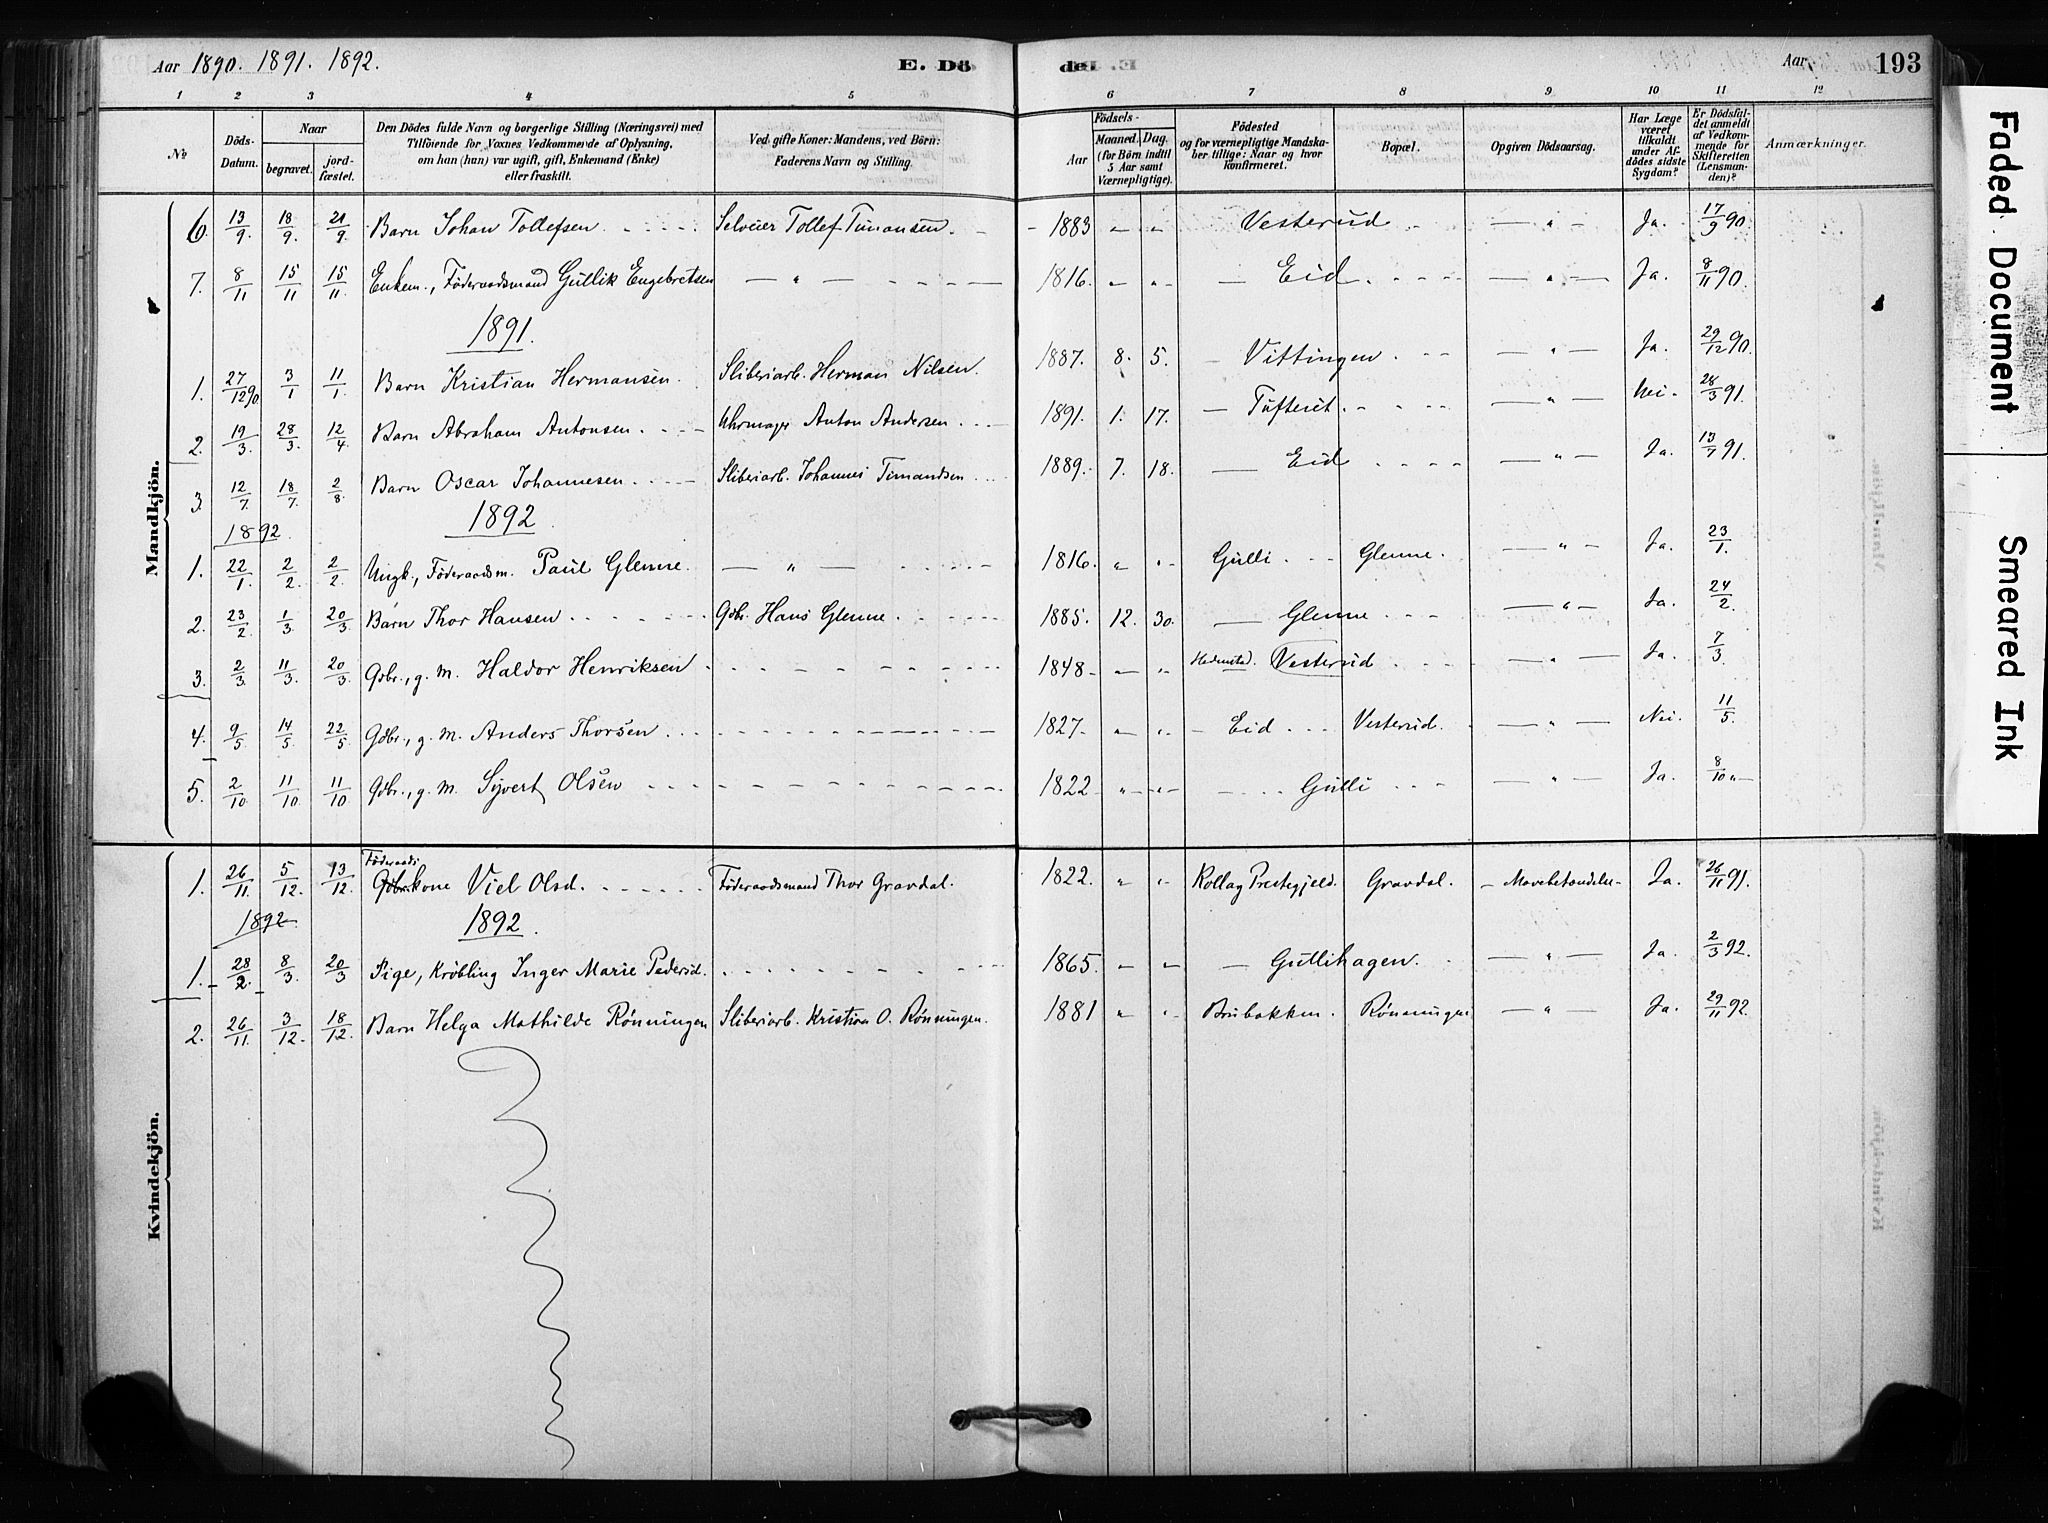 Aar 1890. 1891. 1892. E. Dö de. Aar 193
1 2 3 4 5 6 7 8 9 10 11 12
No.
Döds-Datum.
Naar
begravet.
jord-fæstet.
Den Dödes fulde Navn og borgerlige Stilling (Næringsvei) med
Tilföiende for Voxnes Vedkommende af Oplysning,
om han (hun) var ugift, gift, Enkemand (Enke)
eller fraskilt.
Ved gifte Koner: Mandens, ved Börn:
Faderens Navn og Stilling.
Födsels-
Aar
Maaned. Dag.
(for Börn indtil
5 Aar samt
Værnepligtige).
Födested
og for værnepligtige Mandska-
ber tillige: Naar og hvor
konfirmeret.
Bopæl.
Opgiven Dödsaarsag.
Har Læge
været
tilkaldt
under Af-
dödes sidste
Sygdom?
Er Dödsfal-
det anmeldt
af Vedkom-
mende for
Skifteretten
(Lensman-
den)?
Anmærkninger.
Mandkjön.
6. 13/9. 18/9. 21/9. Barn Johan Tollefsen. Selveier Tollef Timansen. 1883 " " Vesterud — " — Ja. 17/9 90.
7. 8/11 15/11 15/11. Enkem., Föderaadsmand Gullik Engebretsen — " — 1816. " " — Eid. — " — Ja. 8/11 90.
1891.
1. 27/12 90. 3/1 11/1. Barn Kristian Hermansen. Sliberiarb. Herman Nilsen. 1887. 8. 5. — Vittingen. — " — Ja. 29/12 90.
2. 19/3. 28/3. 12/4. Barn Abraham Antonsen. Uhrmager Anton Andersen. 1891. 1. 17. — Tufterut. — " — Nei. 28/3 91.
3. 12/7. 18/7. 2/8. Barn Oscar Johannesen. Sliberiarb. Johannes Timandsen 1889. 7. 18. — Eid — " — Ja. 13/7 91.
1892 1892.
1. 22/1. 2/2. 2/2. Ungk., Föderaadsm. Paul Glenne. — " — 1816. " " Gulli. Glenne. — " — Ja. 23/1.
2. 23/2. 1/3. 20/3. Barn Thor Hansen Gdbr. Hans Glenne. 1885. 12. 30. — Glenne — " — Ja. 24/2.
3. 2/3. 11/3. 20/3. Gdbr., g. m. Haldor Henriksen 1848 — " Hedenstad. Vesterud — " — Ja. 7/3.
4. 9/5. 14/5. 22/5. Gdbr., g. m. Anders Thorsen 1827. " " — Eid Vesterud. — " — Nei. 11/5.
5. 2/10. 11/10 11/10 Gdbr., g. m. Syvert Olsen 1822 " " Gulli — " — Ja. 8/10 "
Kvindekjön.
1. 26/11. 5/12. 13/12. Föderaads Gdbrkone Viel Olsd. Föderaadsmand Thor Gravdal. 1822. " " Rollag Prestegjeld. Gravdal. — Mavebetændelse — Ja. 26/11 91.
1892 1892.
1. 28/2. 8/3. 20/3 Pige, Kröbling Inger Marie Pedersd. 1865. " " — Gullihagen. — " — Ja. 2/3 92.
2. 26/11. 3/12. 18/12. Barn Helga Mathilde Rönningen Sliberiarb. Kristian O. Rönningen. 1881 " " Brubakken. Rönningen — " — Ja. 29/11 92.
Faded Document
Smeared Ink